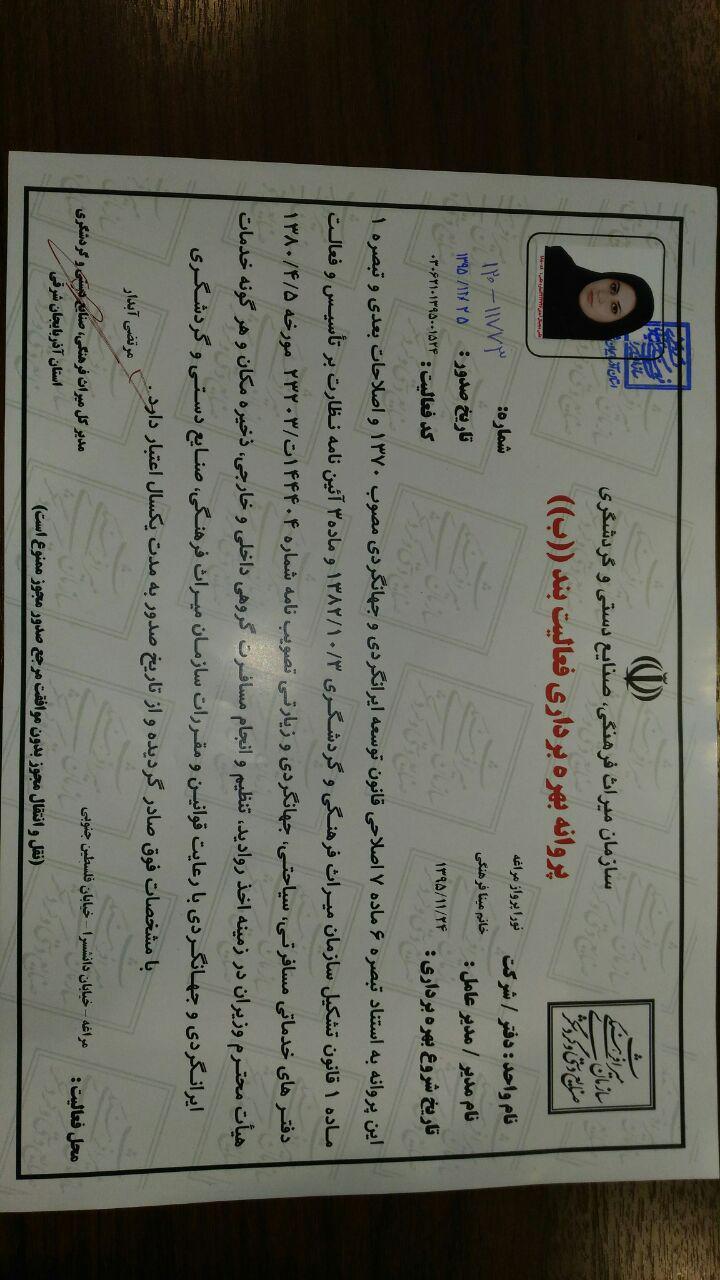 سازمان میراث فرهنگی، صنایع دستی و گردشگری
پروانه بهره برداری فعالیت بند ((ب))
نام واحد : دفتر / شرکت نورا پرواز مراغه
نام مدیر / مدیر عامل : خانم مینا فرهنگی
تاریخ شروع بهره برداری : ۱۳۹۵/۱۱/۲۴
شماره: ۱۲۰-۱۱۷۷۳
تاریخ صدور : ۱۳۹۵/۱۲/۲۵
کد فعالیت : ۰۳۰۶۲۱۰۱۳۹۵۰۰۱۵۲۴
این پروانه به استناد تبصره ۶ ماده ۷ اصلاحی قانون توسعه ایرانگردی و جهانگردی مصوب ۱۳۷۰ و اصلاحات بعدی و تبصره ۱
ماده ۱ قانون تشکیل سازمان میراث فرهنگی و گردشگری ۱۳۸۲/۱۰/۳ و ماده ۳ آئین نامه نظارت بر تأسیس و فعالیت
دفتر های خدماتی مسافرتی، سیاحتی، جهانگردی و زیارتی تصویب نامه شماره ۱۴۴۰۴ت/۲۳۲۰۳ مورخه ۱۳۸۰/۴/۵
هیأت محترم وزیران در زمینه اخذ روادید، تنظیم و انجام مسافرت گروهی داخلی و خارجی، ذخیره مکان و هر گونه خدمات
ایرانگردی و جهانگردی با رعایت قوانین و مقررات سازمان میراث فرهنگی، صنایع دستی و گردشگری
با مشخصات فوق صادر گردیده و از تاریخ صدور به مدت یکسال اعتبار دارد.
مرتضی آبدار
مدیر کل میراث فرهنگی، صنایع دستی و گردشگری
استان آذربایجان شرقی
محل فعالیت : مراغه - خیابان دانشسرا - خیابان فلسطین جنوبی
(نقل و انتقال مجوز بدون موافقت مرجع صدور مجوز ممنوع است)
سازمان میراث فرهنگی
صنایع دستی و گردشگری